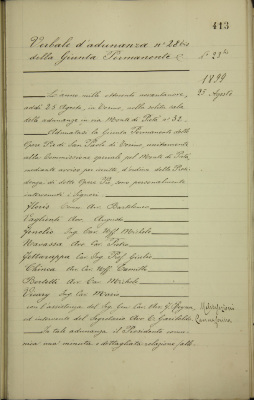 413
Verbale d'adunanza n° 28bis
della Giunta Permanente
N° 28bis
1899
25 Agosto
L'anno mille ottocento novantanove,
addì 25 Agosto, in Torino, nella solita sala
delle adunanze in via Monte di Pietà n° 32.
Adunatasi la Giunta Permanente delle
Opere Pie di San Paolo di Torino, unitamente
alla Commissione speciale pel Monte di Pietà,
mediante avviso per iscritto, d'ordine della Presi-
denza di dette Opere Pie, sono personalmente
intervenuti i Signori
Floris Comm. Avv. Bartolomeo
Vaglienti Avv.
Ing. Cav. Uff. Michele
Ravassa Avv. Cav. Pietro
Cav. Ing. Prof. Giulio
Avv. Cav. Uff.
Bertetti Avv. Cav. Michele
Vicary Ing. Cav. Mario
con l'assistenza del Sig. Cav. Avv. G.
ed intervento del Segretario Avv. C. Garibaldi
In tale adunanza il Presidente comu-
nica una minuta e dettagliata relazione fatta